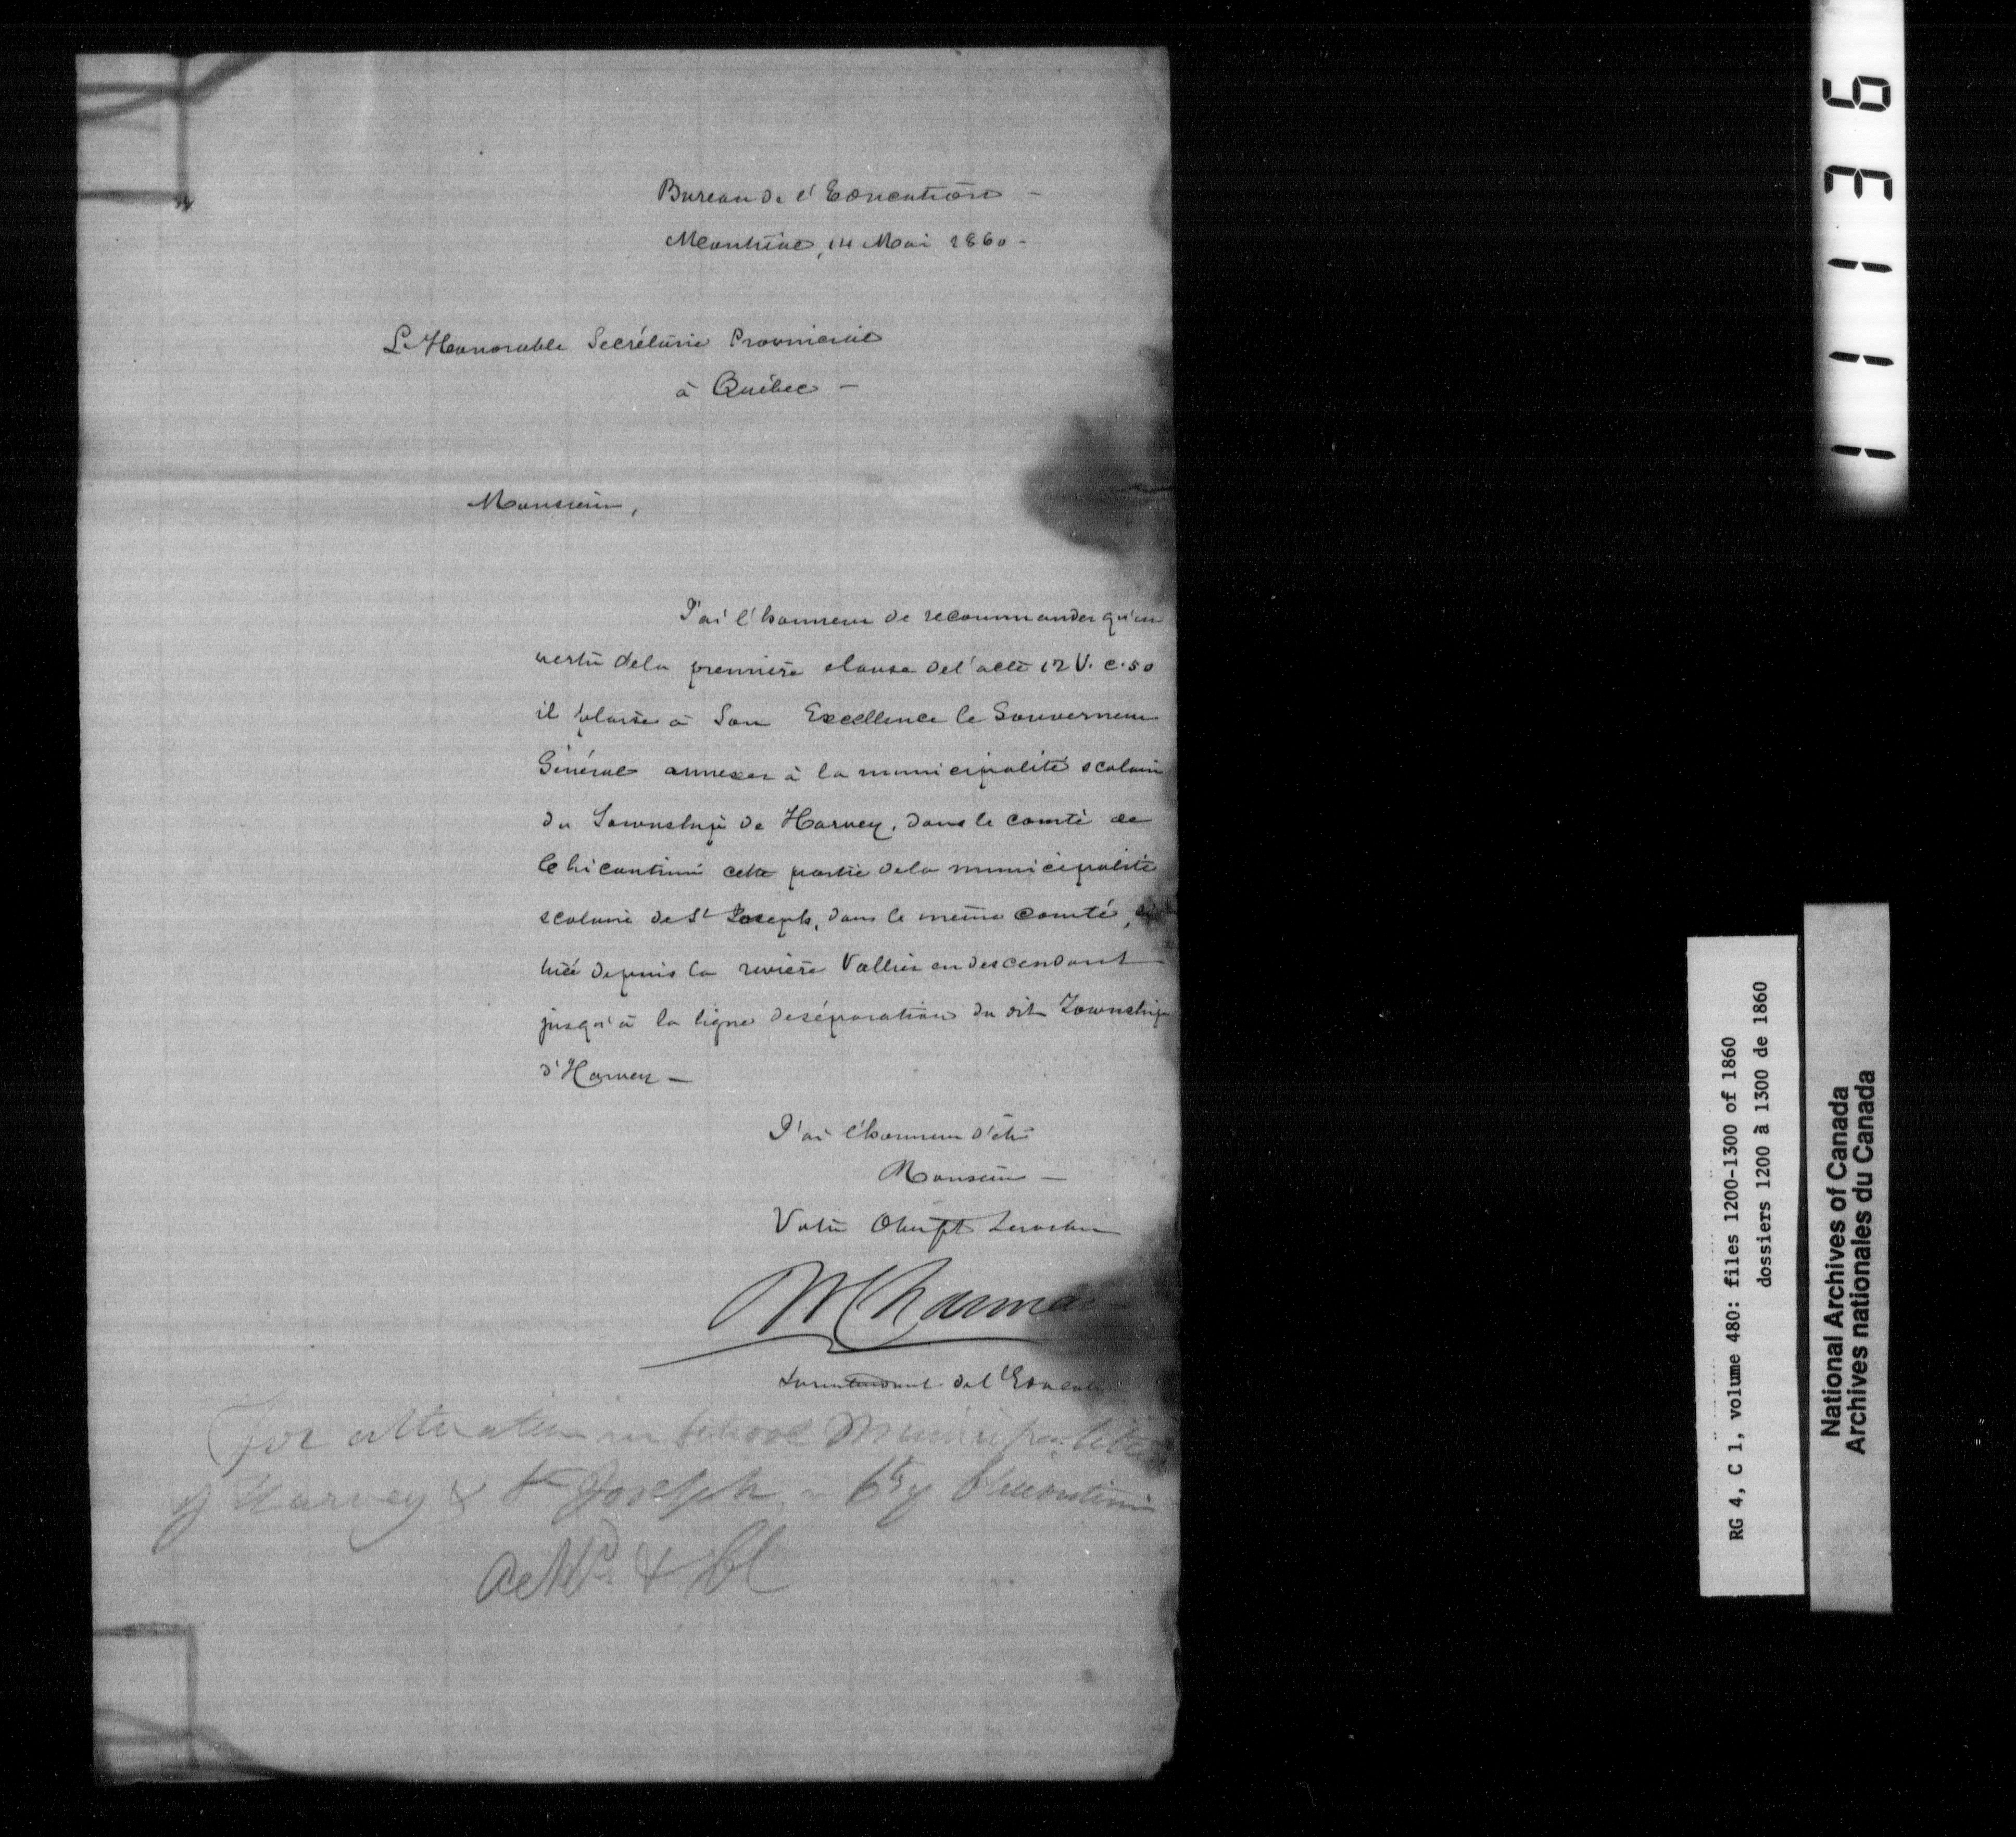 Bureau de l'Education -
Montréal, 14 Mai 1860 -
L'Honorable Secrétaire Provincial
à Québec -
Monsieur,
J'ai l'honneur de recommander qu'en
vertu de la première clause de l'acte 12 V. c. 50
il plaise à Son Excellence le Gouverneur
Général annexer à la municipalité scolaire
du Township de Harvey, dans le comté de
Chicoutimi cette partie de la municipalité
scolaire de St Joseph, dans le même comté,
depuis la rivière Vallier en descendant
jusqu'à la ligne de séparation du dit Township
d'Harvey -
J'ai l'honneur d'être
Monsieur -
Votre Obeist Serviteur
Surintendant de l'Education
For alteration in School Municipalities
of Harvey & St Joseph - Cty Chicoutimi
11136
RG 4, C 1, volume 480: files 1200-1300 of 1860
dossiers 1200 à 1300 de 1860
National Archives of Canada
Archives nationales du Canada